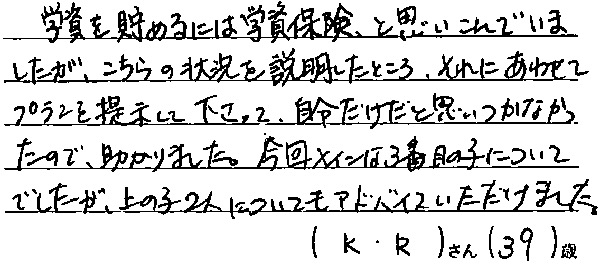 学資を貯めるには学資保険、と思いこんでいま
したが、こちらの状況を説明したところ、それにあわせて
プランを提示して下さって、自分だけだと思いつかなかっ
たので、助かりました。今回メインは3番目の子について
でしたが、上の子2人についてもアドバイスいただけました。
( K・R )さん (39)歳